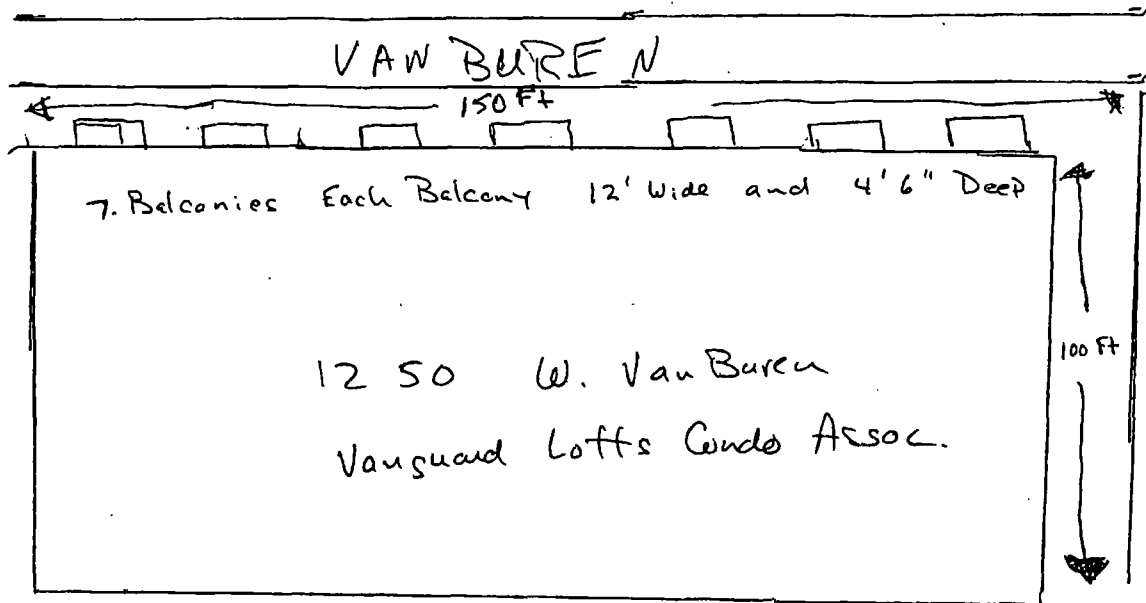 VAN BUREN
150 Ft
7. Balconies Each Balcony 12' Wide and 4' 6" Deep
100 Ft
1250 W. Van Buren
Vanguard Lofts Condo Assoc.